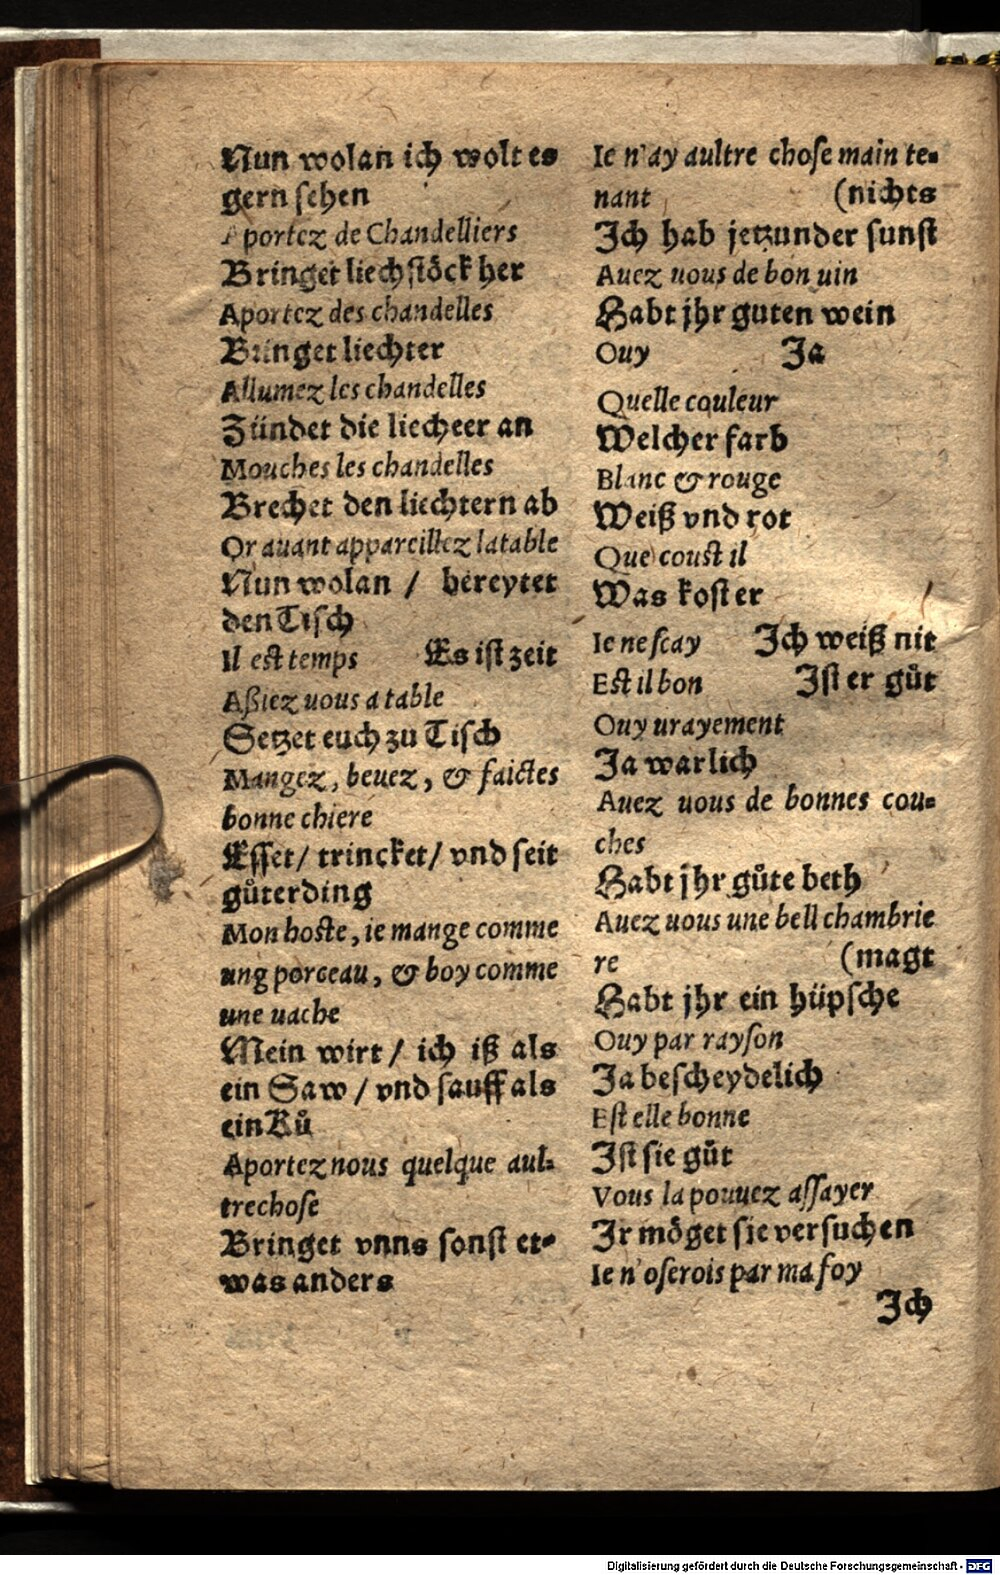 Nun wolan ich wolt es
gern sehen
Aportez de Chandelliers
Bringet liechstöck her
Aportez des chandelles
Bringet liechter
Allumez les chandelles
Zündet die liecheer an
Mouches les chandelles
Brechet den liechtern ab
Or auant appareillez latable
Nun wolan / bereytet
den Tisch
Il est temps Es ist zeit
Aßiez uous a table
Setzet euch zu Tisch
Mangez, beuez, & faictes
bonne chiere
Esset / trincket / vnd seit
gůterding
Mon hoste, ie mange comme
ung porceau, & boy comme
une uache
Mein wirt / ich iß als
ein Saw / vnd sauff als
ein Ků
Aportez nous quelque aul-
trechose
Bringet vnns sonst et-
was anders
Ie n'ay aultre chose main te-
nant (nichts
Ich hab jetzunder sunst
Auez uous de bon uin
Habt jhr guten wein
Ouy Ja
Quelle couleur
Welcher farb
Blanc & rouge
Weiß vnd rot
Que coust il
Was kost er
Ie ne scay Ich weiß nit
Est il bon Ist er gůt
Ouy urayement
Ja warlich
Auez uous de bonnes cou-
ches
Habt jhr gůte beth
Auez uous une bell chambrie
re (magt
Habt jhr ein hüpsche
Ouy par rayson
Ja bescheydelich
Est elle bonne
Ist sie gůt
Vous la pouuez assayer
Ir möget sie versuchen
Ie n'oserois par ma foy
Ich
Digitalisierung gefördert durch die Deutsche Forschungsgemeinschaft - DFG